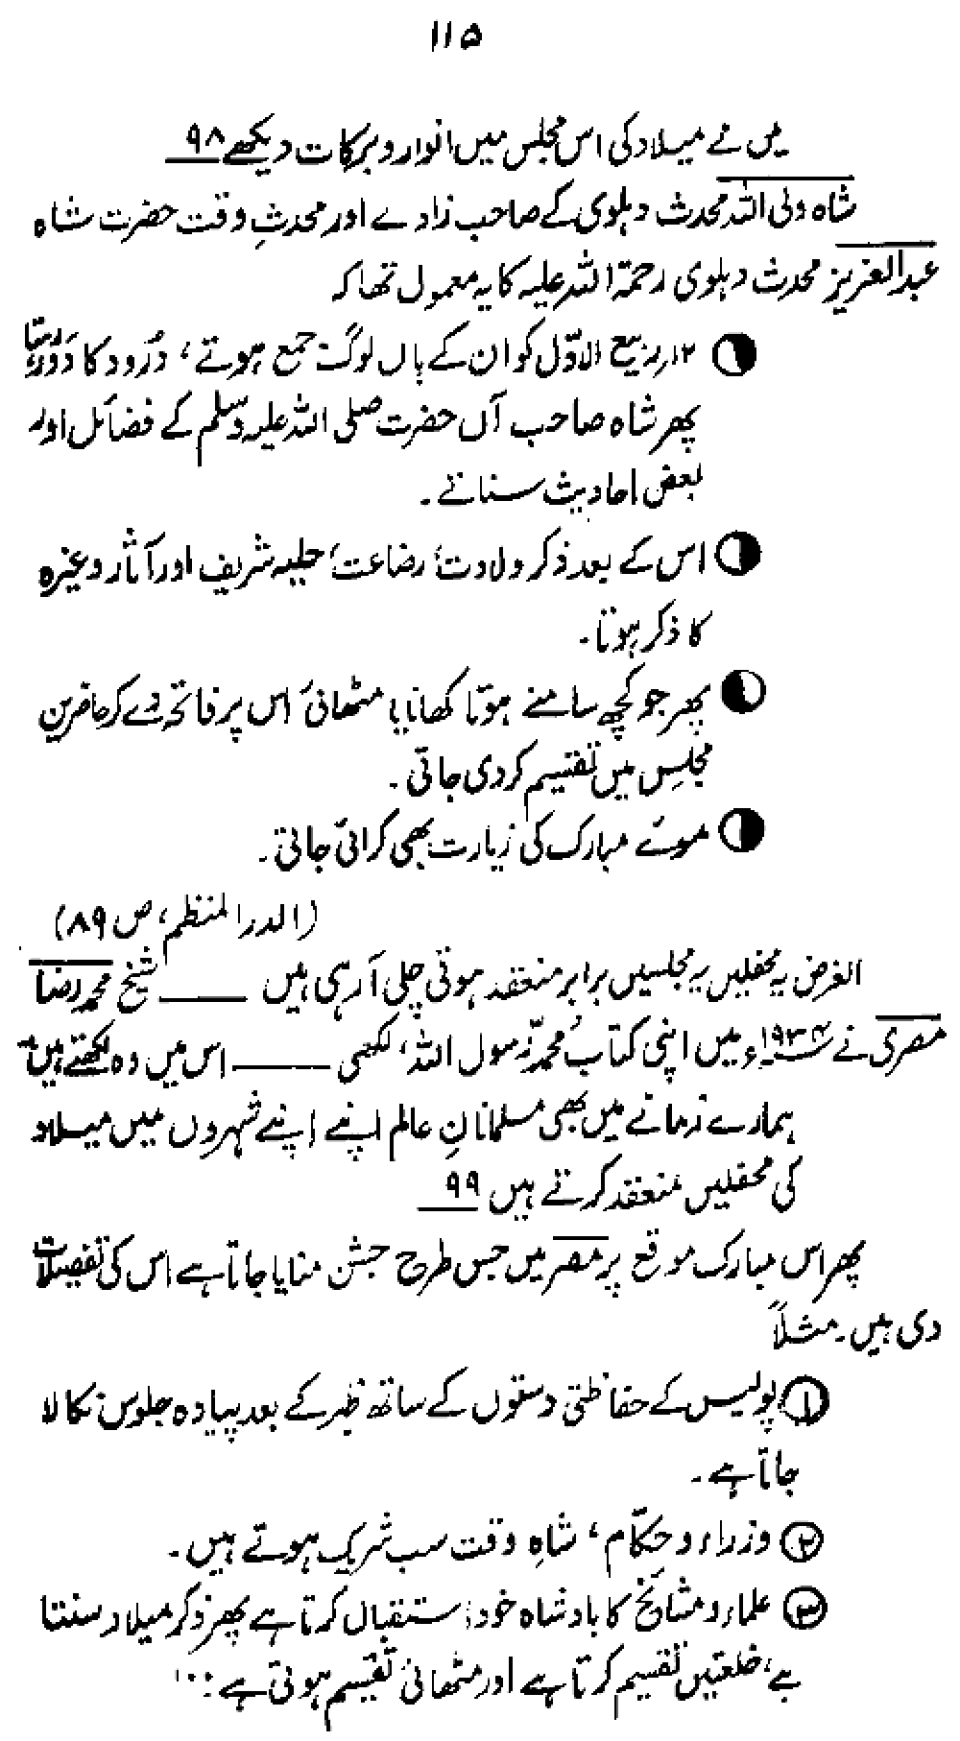 ۱۱۵
میں نے میلاد کی اس مجلس میں انوار و برکات دیکھے ۹۸
شاہ ولی اللہ محدث دہلوی کے صاحب زادے اور محدثِ وقت حضرت شاہ
عبدالعزیز محدث دہلوی رحمۃ اللہ علیہ کا یہ معمول تھا کہ
۱۲ ربیع الاوّل کو ان کے ہاں لوگ جمع ہوتے، دُرود کا دَور رہتا
پھر شاہ صاحب آں حضرت صلی اللہ علیہ وسلم کے فضائل اور
بعض احادیث سناتے۔
اس کے بعد ذکر ولادت، رضاعت، حلیہ شریف اور آثار وغیرہ
کا ذکر ہوتا۔
پھر جو کچھ سامنے ہوتا کھانا یا مٹھائی اس پر فاتحہ دے کر حاضرین
مجلس میں تقسیم کر دی جاتی۔
موئے مبارک کی زیارت بھی کرائی جاتی۔
(الدر المنظم، ص ۸۹)
الغرض یہ محفلیں یہ مجلسیں برابر منعقد ہوتی چلی آ رہی ہیں ـــــ شیخ محمد رضا
مصری نے ۱۹۳۴ء میں اپنی کتاب 'محمد رّسول اللہ' لکھی ـــــ اس میں وہ لکھتے ہیں:
ہمارے زمانے میں بھی مسلمانانِ عالم اپنے اپنے شہروں میں میلاد
کی محفلیں منعقد کرتے ہیں ۹۹
پھر اس مبارک موقع پر مصر میں جس طرح جشن منایا جاتا ہے اس کی تفصیلات
دی ہیں۔ مثلاً
① پولیس کے حفاظتی دستوں کے ساتھ ظہر کے بعد پیادہ جلوس نکالا
جاتا ہے۔
② وزراء و حکّام، شاہِ وقت سب شریک ہوتے ہیں۔
③ علماء و مشائخ کا بادشاہ خود استقبال کرتا ہے پھر ذکر میلاد سنتا
ہے، خلعتیں تقسیم کرتا ہے اور مٹھائی تقسیم ہوتی ہے: ۱۰۰